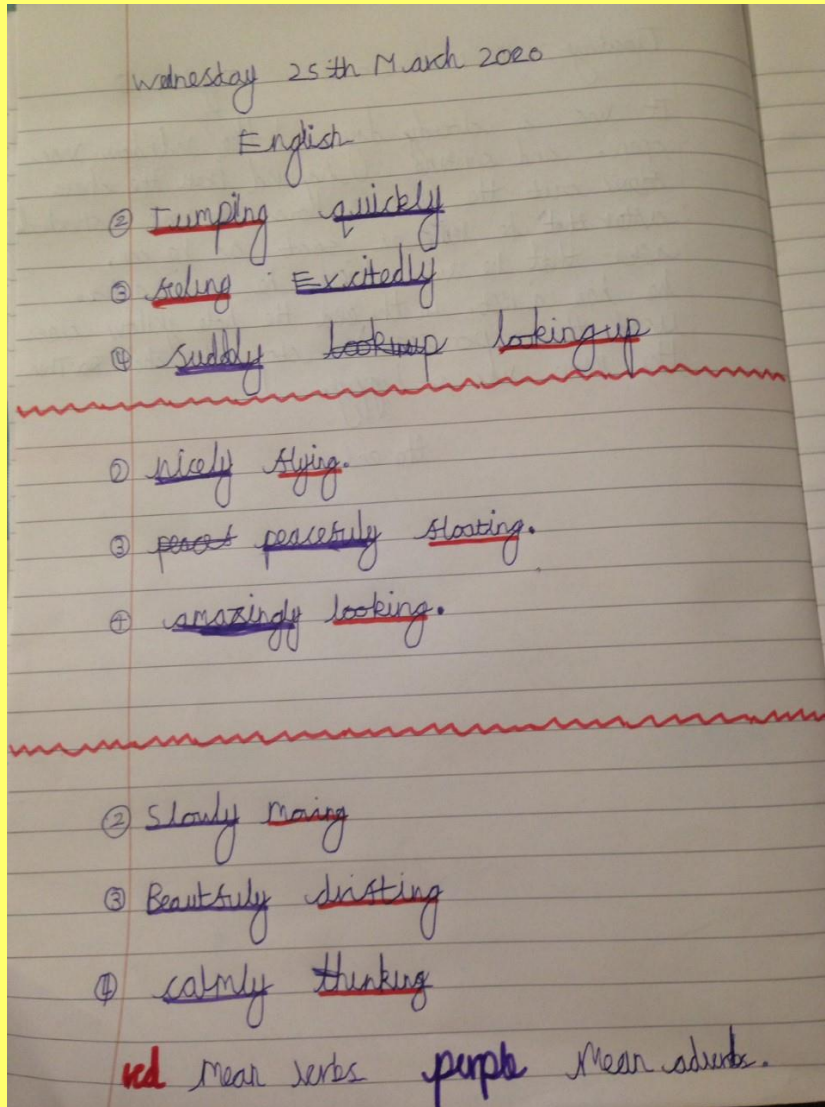 Wednesday 25th March 2020
English
② Jumping quickly
③ feeling Excitedly
④ suddly lookup looking up
② nicely flying.
③ peacefuly floating.
④ amazingly looking.
② Slowly moving
③ Beautfuly drifting
④ calmly thinking
red Mean verbs purple Mean adverbs.